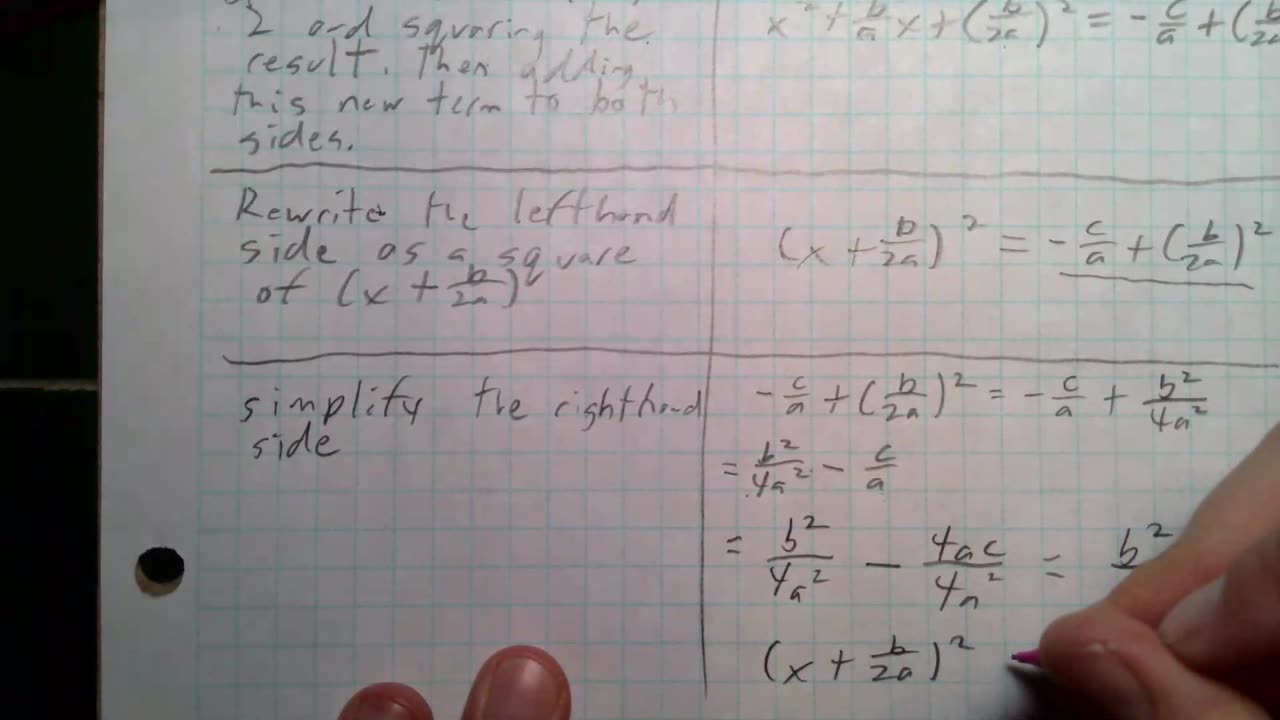 2 and squaring the
result. Then adding
this new term to both
sides.
x² + b/a x + (b/2a)² = - c/a + (b/2a
Rewrite the lefthand
side as a square
of (x + b/2a)²
(x + b/2a)² = - c/a + (b/2a)²
simplify the righthand
side
- c/a + (b/2a)² = - c/a + b²/4a²
= b²/4a² - c/a
= b²/4a² - 4ac/4a² = b²
(x + b/2a)²